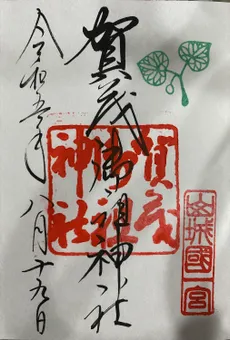 賀茂御祖神社
令和五年
八月十九日
賀茂
御祖
神社
山城國
一宮